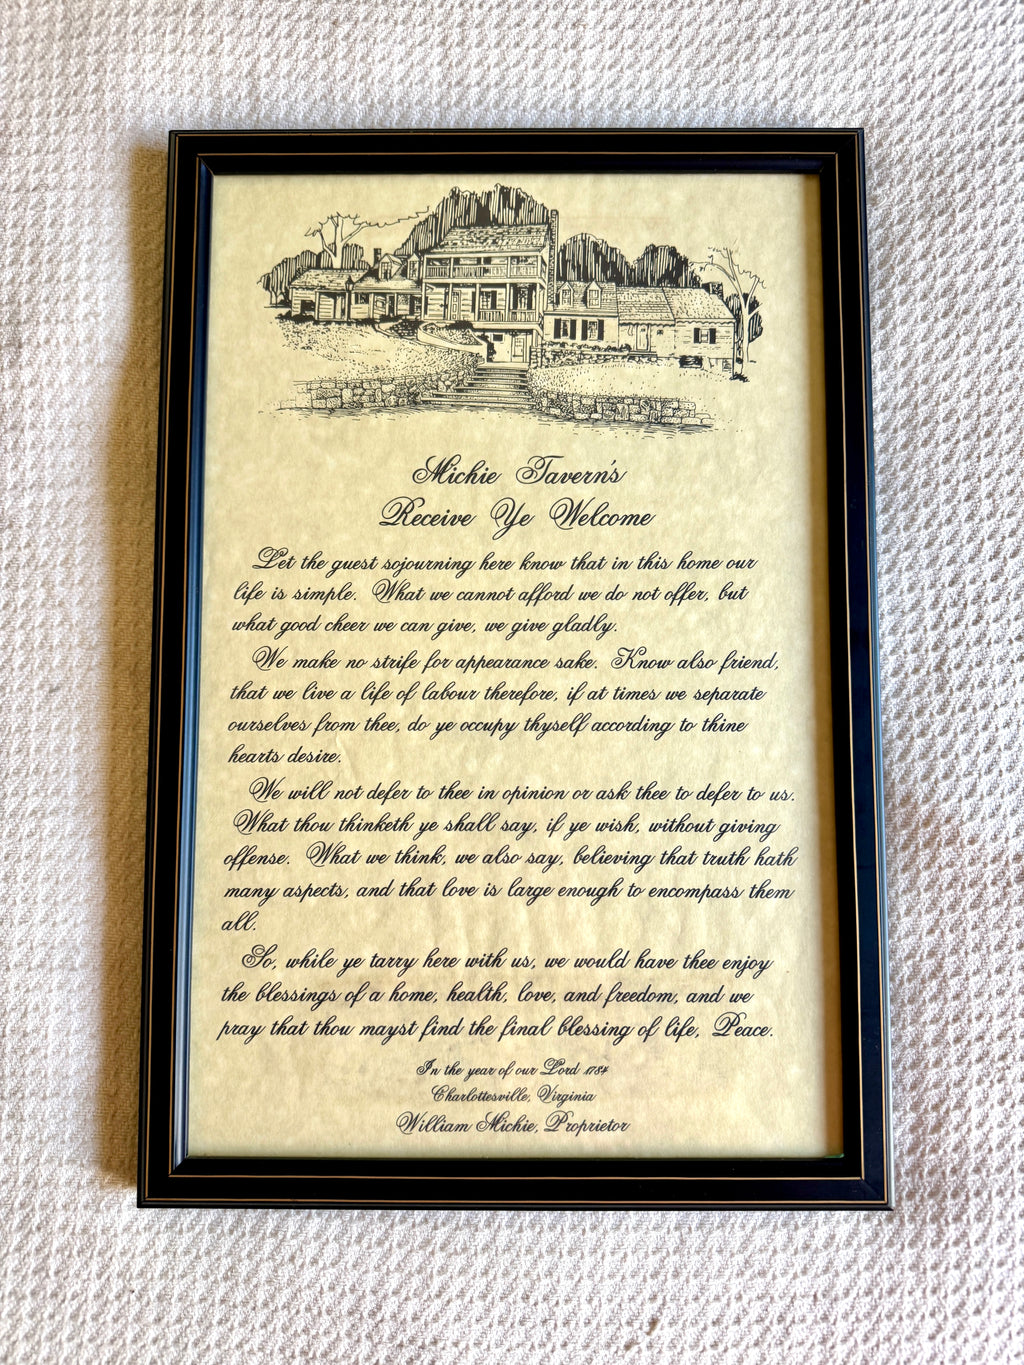 Michie Tavern's
Receive Ye Welcome
Let the guest sojourning here know that in this home our
life is simple. What we cannot afford we do not offer, but
what good cheer we can give, we give gladly.
We make no strife for appearance sake. Know also friend,
that we live a life of labour therefore, if at times we separate
ourselves from thee, do ye occupy thyself according to thine
hearts desire.
We will not defer to thee in opinion or ask thee to defer to us.
What thou thinketh ye shall say, if ye wish, without giving
offense. What we think, we also say, believing that truth hath
many aspects, and that love is large enough to encompass them
all.
So, while ye tarry here with us, we would have thee enjoy
the blessings of a home, health, love, and freedom, and we
pray that thou mayst find the final blessing of life, Peace.
In the year of our Lord 1784
Charlottesville, Virginia
William Michie, Proprietor